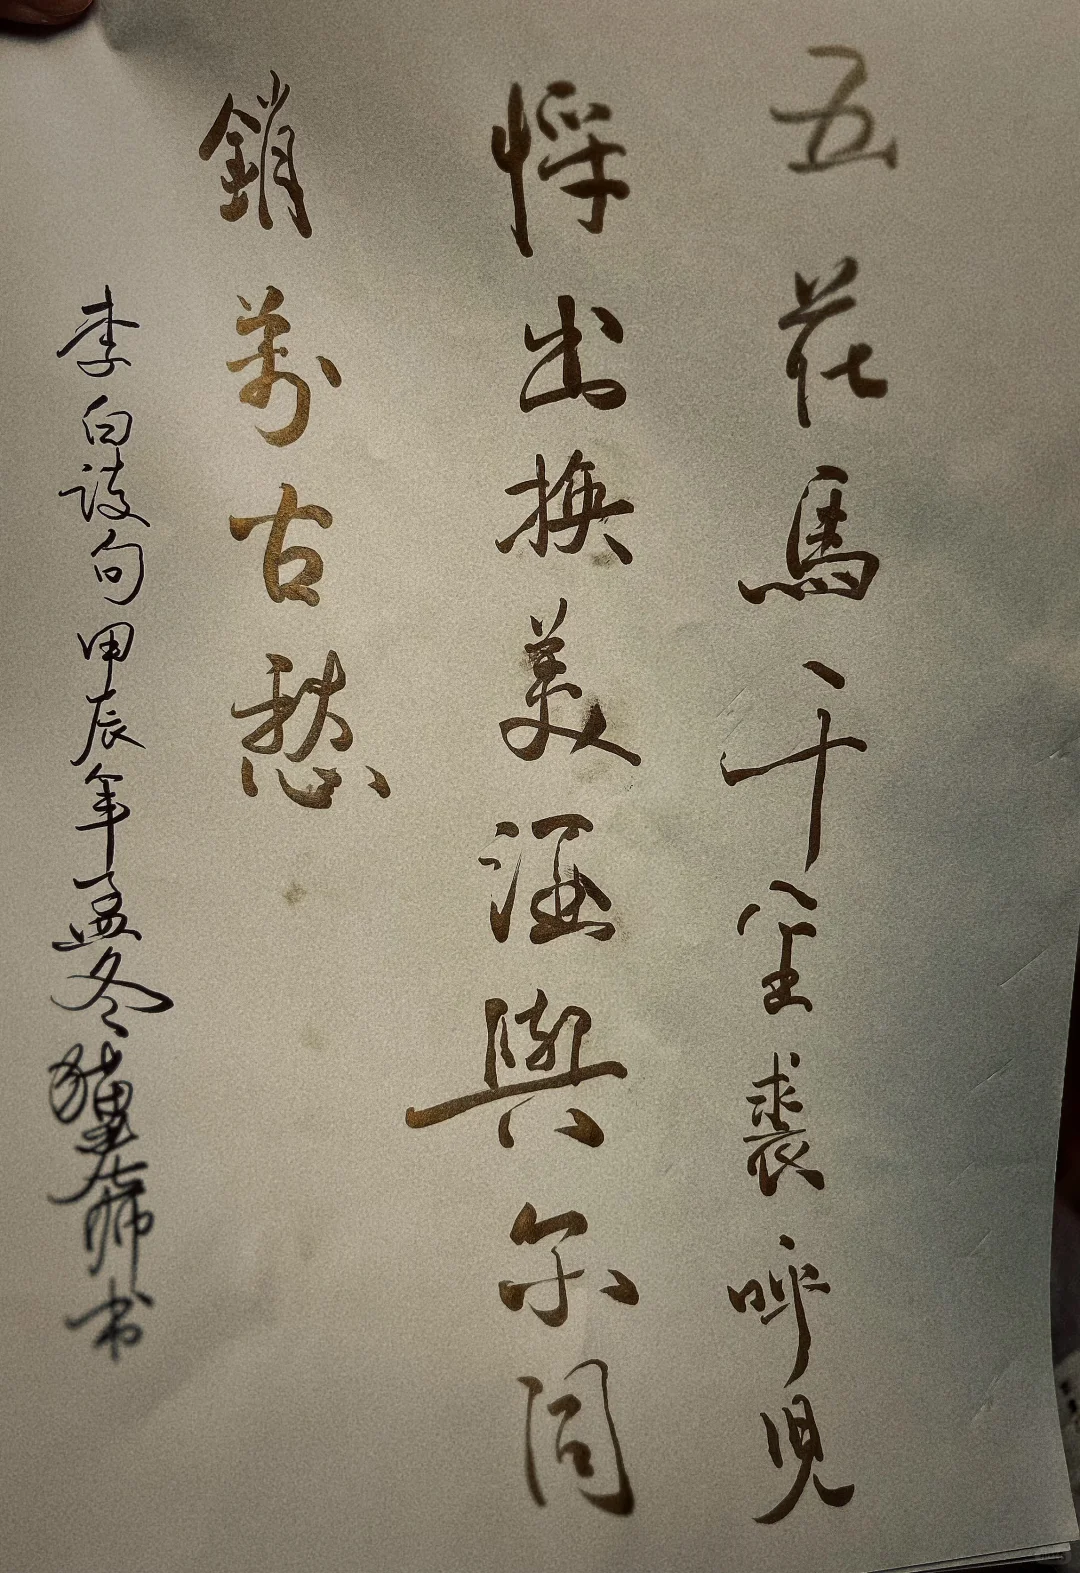 五花馬千金裘呼兒
将出换美酒與尔同
銷萬古愁
李白诗句甲辰年孟冬师书